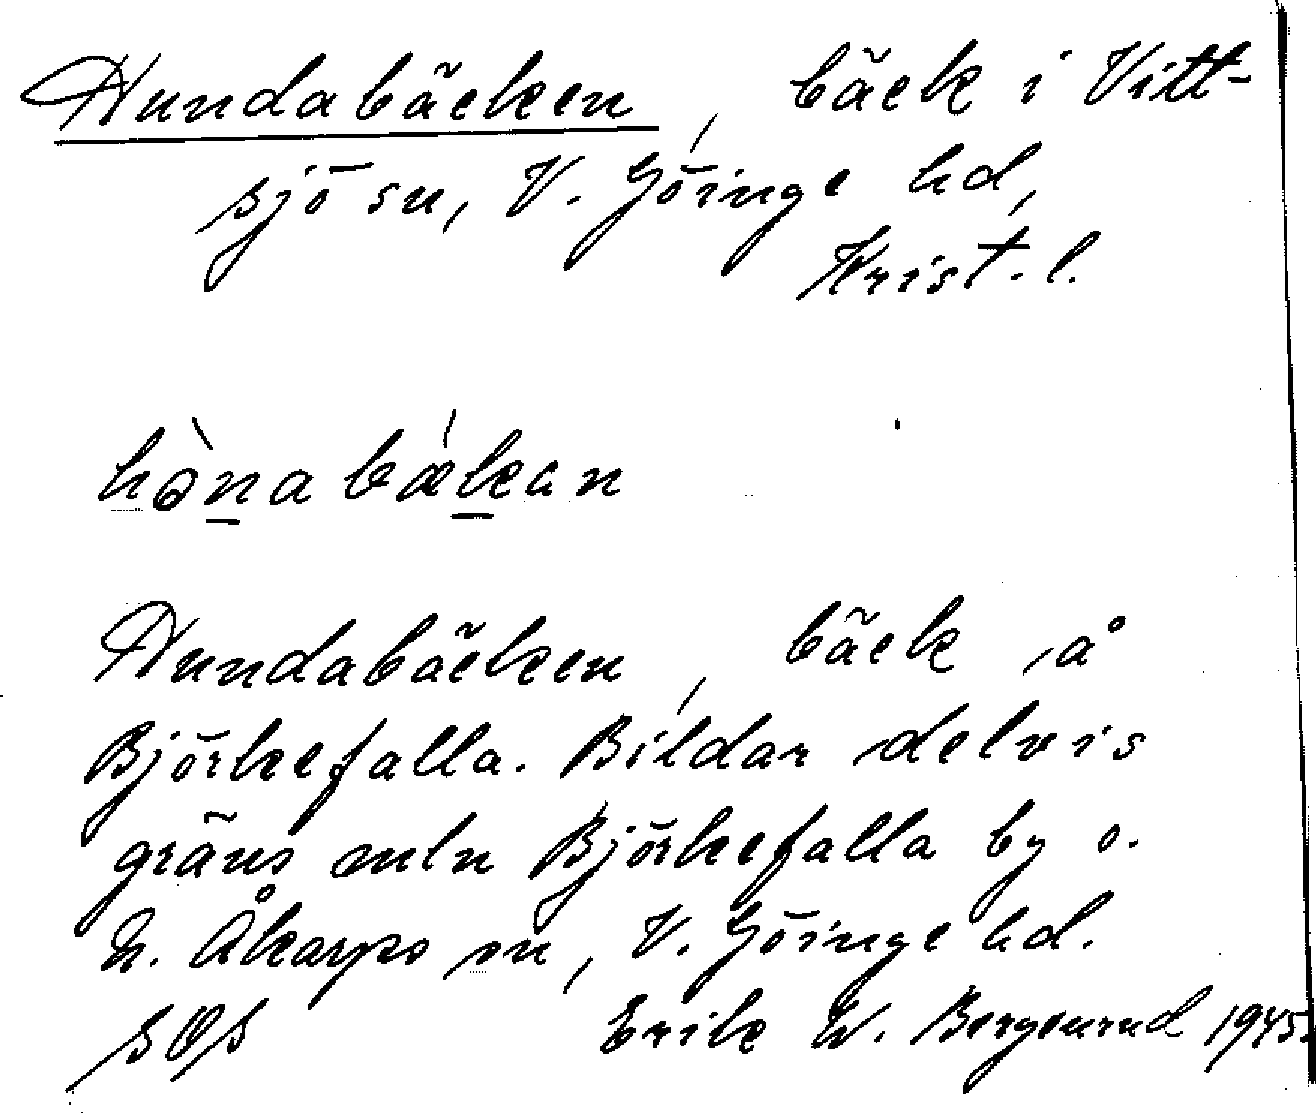 Hundabäcken, bäck i Vitt-
sjö sn, V. Göinge hd,
Krist. l.
hὸnabǽkan
Hundabäcken, bäck å
Björkefalla. Bildar delvis
gräns mln Björkefalla by o.
N. Åkarps sn, V. Göinge hd.
SOS Erik W. Bergenrud 1945.